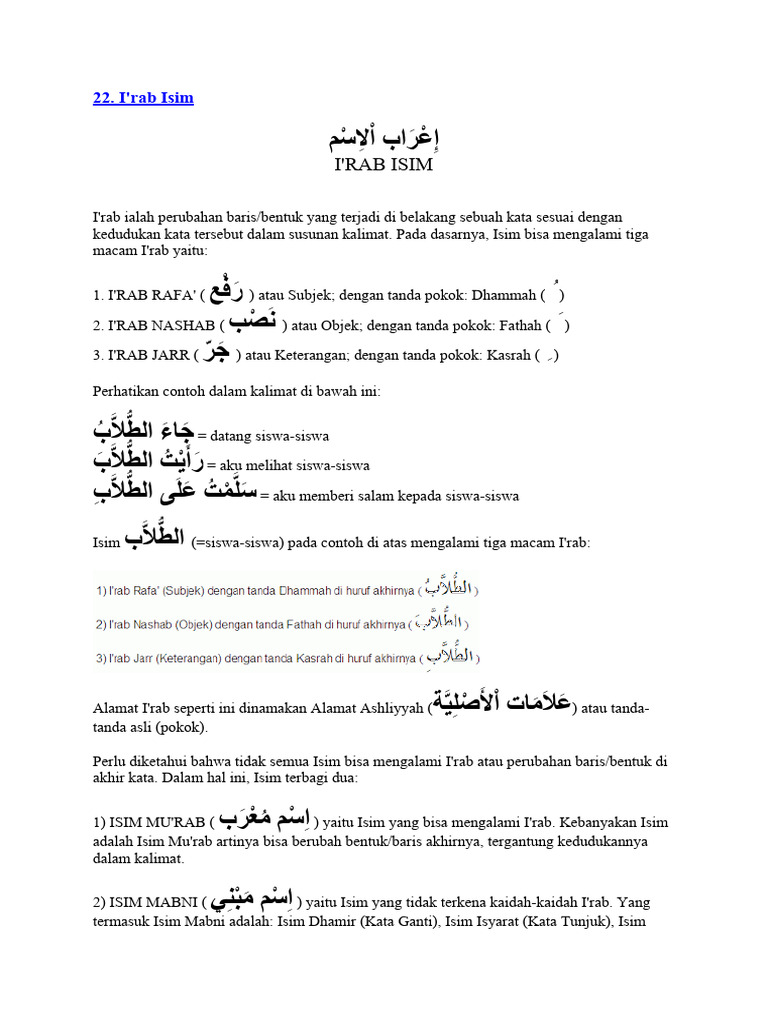 22. I'rab Isim
إِعْرَاب اْلاِسْم
I'RAB ISIM
I'rab ialah perubahan baris/bentuk yang terjadi di belakang sebuah kata sesuai dengan
kedudukan kata tersebut dalam susunan kalimat. Pada dasarnya, Isim bisa mengalami tiga
macam I'rab yaitu:
1. I'RAB RAFA' ( رَفْع ) atau Subjek; dengan tanda pokok: Dhammah ( ُ )
2. I'RAB NASHAB ( نَصْب ) atau Objek; dengan tanda pokok: Fathah ( َ )
3. I'RAB JARR ( جَرّ ) atau Keterangan; dengan tanda pokok: Kasrah ( ِ )
Perhatikan contoh dalam kalimat di bawah ini:
جَاءَ الطُّلاَّبُ = datang siswa-siswa
رَأَيْتُ الطُّلاَّبَ = aku melihat siswa-siswa
سَلَّمْتُ عَلَى الطُّلاَّبِ = aku memberi salam kepada siswa-siswa
Isim الطُّلاَّب (=siswa-siswa) pada contoh di atas mengalami tiga macam I'rab:
1) I'rab Rafa' (Subjek) dengan tanda Dhammah di huruf akhirnya ( الطُّلاَّبُ )
2) I'rab Nashab (Objek) dengan tanda Fathah di huruf akhirnya ( الطُّلاَّبَ )
3) I'rab Jarr (Keterangan) dengan tanda Kasrah di huruf akhirnya ( الطُّلاَّبِ )
Alamat I'rab seperti ini dinamakan Alamat Ashliyyah (عَلاَمَات اْلأَصْلِيَّة) atau tanda-
tanda asli (pokok).
Perlu diketahui bahwa tidak semua Isim bisa mengalami I'rab atau perubahan baris/bentuk di
akhir kata. Dalam hal ini, Isim terbagi dua:
1) ISIM MU'RAB ( اِسْم مُعْرَب ) yaitu Isim yang bisa mengalami I'rab. Kebanyakan Isim
adalah Isim Mu'rab artinya bisa berubah bentuk/baris akhirnya, tergantung kedudukannya
dalam kalimat.
2) ISIM MABNI ( اِسْم مَبْنِي ) yaitu Isim yang tidak terkena kaidah-kaidah I'rab. Yang
termasuk Isim Mabni adalah: Isim Dhamir (Kata Ganti), Isim Isyarat (Kata Tunjuk), Isim